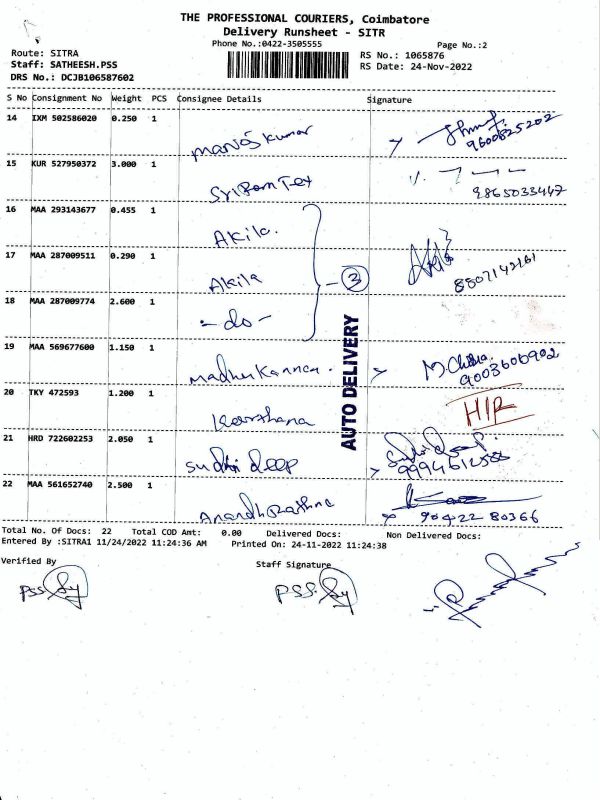 THE PROFESSIONAL COURIERS, Coimbatore
Delivery Runsheet - SITR
Phone No.:0422-3505555
Page No.:2
Route: SITRA
RS No.: 1065876
Staff: SATHEESH.PSS
RS Date: 24-Nov-2022
DRS No.: DCJB106587602
S No Consignment No Weight PCS Consignee Details Signature
14 IXM 502586020 0.250 1 Manoj Kumar
9600825202
15 KUR 527950372 3.000 1 Sri Ram Tex
9865033447
16 MAA 293143677 0.455 1 Akila.
17 MAA 287009511 0.290 1 Akila
3
8807142161
18 MAA 287009774 2.600 1 - do -
AUTO DELIVERY
19 MAA 569677600 1.150 1 Madhu Kannan. M. Chitra.
9003606902
20 TKY 472593 1.200 1 Keerthana
21 HRD 722602253 2.050 1 Sudhi deep
22 MAA 561652740 2.500 1 Anandh Rathna
90422 80366
Total No. Of Docs: 22 Total COD Amt: 0.00 Delivered Docs: Non Delivered Docs:
Entered By :SITRA1 11/24/2022 11:24:36 AM Printed On: 24-11-2022 11:24:38
Verified By Staff Signature
PSS. PSS.